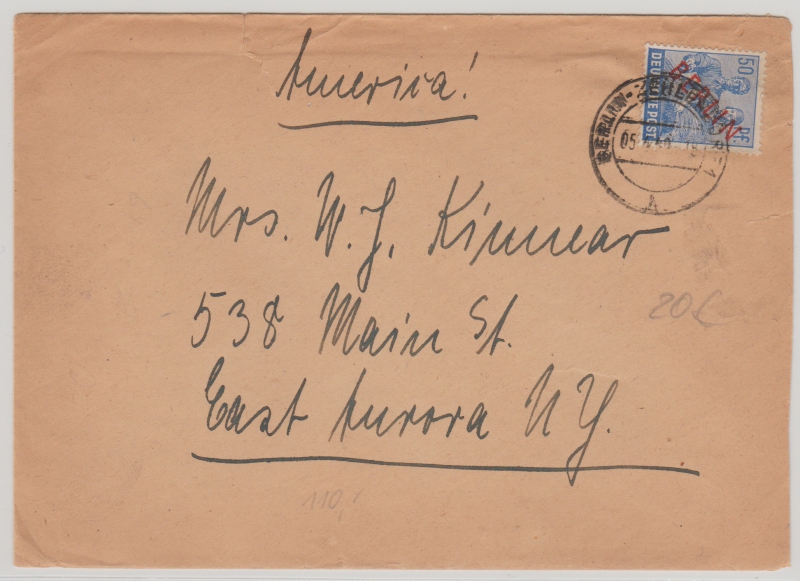 America!
50
PF
DEUTSCHE POST
BERLIN
BERLIN-ZEHLENDORF 1
05
A
Mrs. W. J. Kinnear
20 £
538 Main St.
East Aurora N Y.
110,-